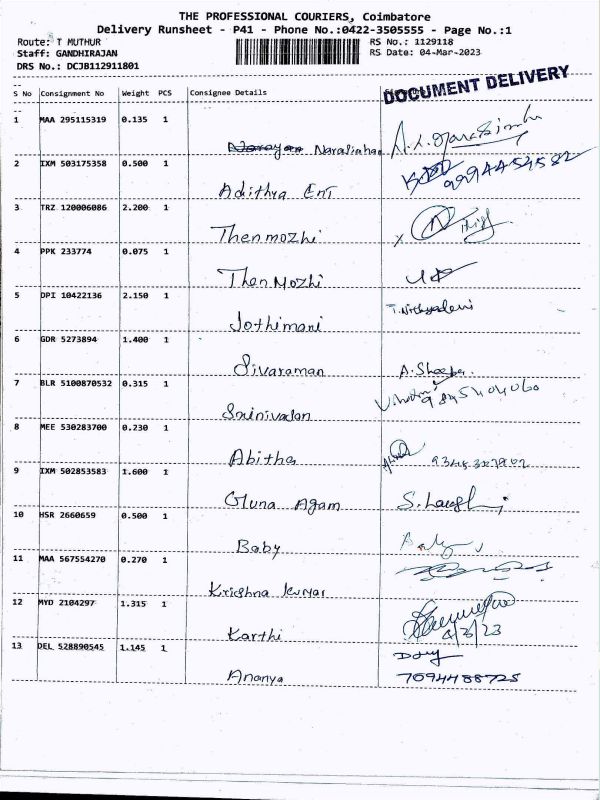 THE PROFESSIONAL COURIERS, Coimbatore
Delivery Runsheet - P41 - Phone No.:0422-3505555 - Page No.:1
Route: T MUTHUR
RS No.: 1129118
Staff: GANDHIRAJAN
RS Date: 04-Mar-2023
DRS No.: DCJB112911801
DOCUMENT DELIVERY
S No Consignment No Weight PCS Consignee Details
1 MAA 295115319 0.135 1
2 IXM 503175358 0.500 1
Adithya Ent
3 TRZ 120006086 2.200 1
Thenmozhi
4 PPK 233774 0.075 1
Then Mozhi
5 DPI 10422136 2.150 1
Jothimani T. Nithyadevi
6 GDR 5273894 1.400 1
Sivaraman A. Sheeba
7 BLR 5100870532 0.315 1
8 MEE 530283700 0.230 1
Abitha
9 IXM 502853583 1.600 1
Guna Agam
10 HSR 2660659 0.500 1
Baby
11 MAA 567554270 0.270 1
Krishna kumar
12 MYD 2104297 1.315 1
Karthi 4/3/23
13 DEL 528890545 1.145 1
Ananya 7094488725